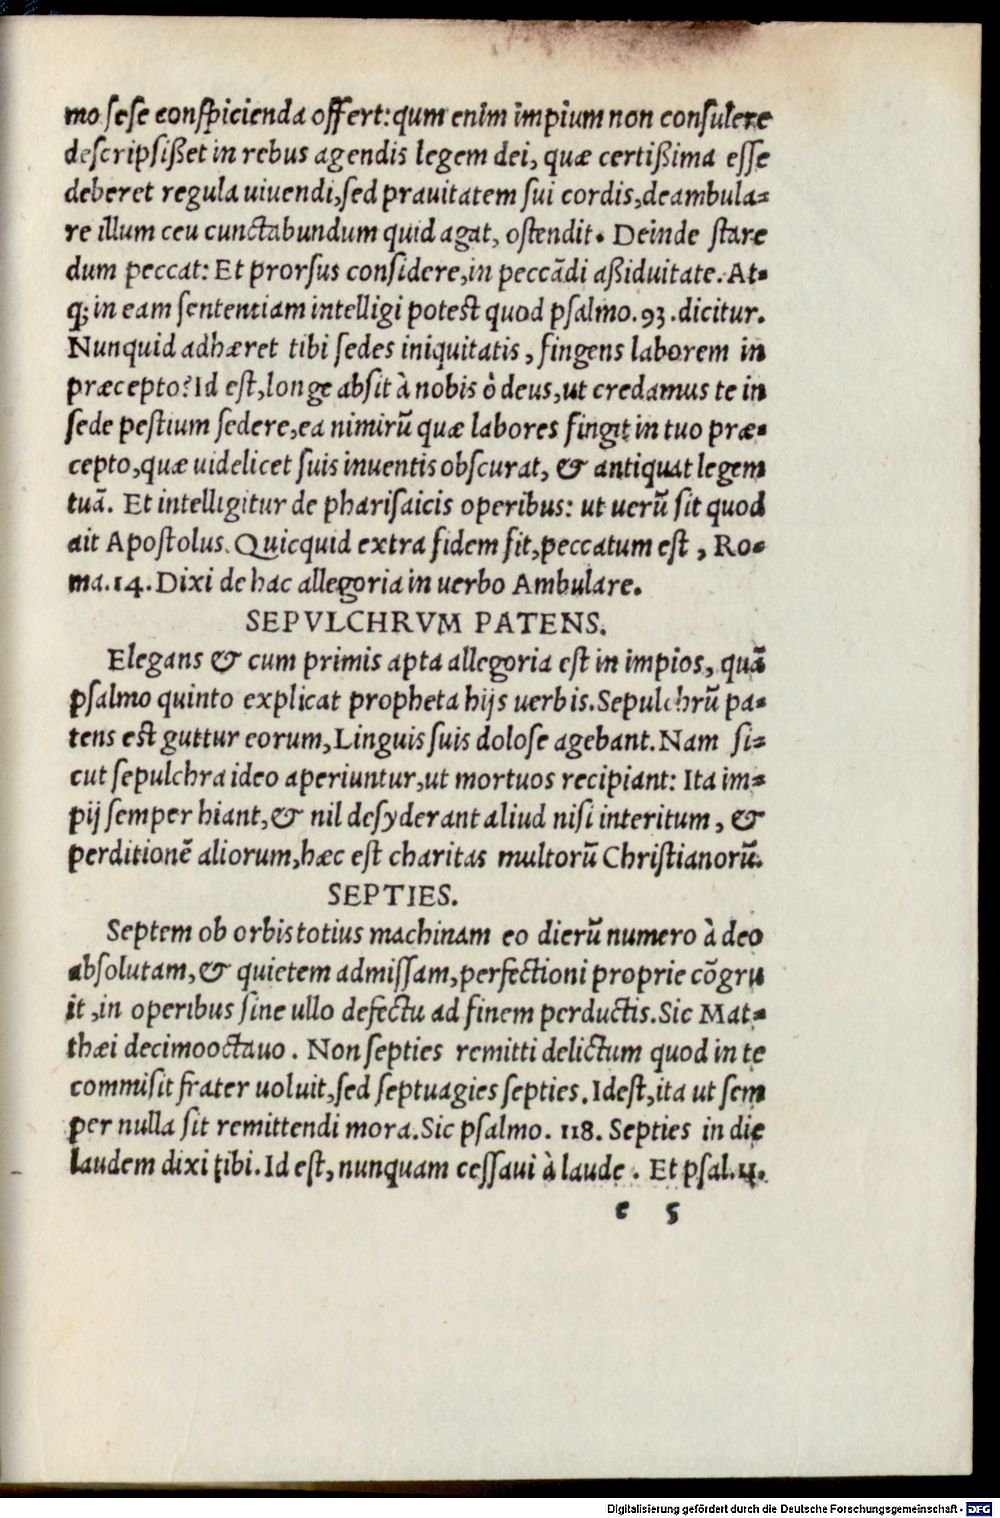 mo ſeſe conſpicienda offert: qum enim impium non conſulere
deſcripſißet in rebus agendis legem dei, quæ certißima eſſe
deberet regula uiuendi, ſed prauitatem ſui cordis, deambula-
re illum ceu cunctabundum quid agat, oſtendit. Deinde ſtare
dum peccat: Et prorſus conſidere, in peccãdi aßiduitate. At-
q; in eam ſententiam intelligi poteſt quod pſalmo. 93. dicitur.
Nunquid adhæret tibi ſedes iniquitatis, fingens laborem in
præcepto? Id eſt, longe abſit à nobis ò deus, ut credamus te in
ſede peſtium ſedere, ea nimirũ quæ labores fingit in tuo præ-
cepto, quæ uidelicet ſuis inuentis obſcurat, & antiquat legem
tuã. Et intelligitur de phariſaicis operibus: ut uerũ ſit quod
ait Apoſtolus. Quicquid extra fidem fit, peccatum eſt, Ro-
ma. 14. Dixi de hac allegoria in uerbo Ambulare.
SEPVLCHRVM PATENS.
Elegans & cum primis apta allegoria eſt in impios, quã
pſalmo quinto explicat propheta hijs uerbis. Sepulchrũ pa-
tens eſt guttur eorum, Linguis ſuis doloſe agebant. Nam ſi-
cut ſepulchra ideo aperiuntur, ut mortuos recipiant: Ita im-
pij ſemper hiant, & nil deſyderant aliud niſi interitum, &
perditionẽ aliorum, hæc eſt charitas multorũ Chriſtianorũ.
SEPTIES.
Septem ob orbis totius machinam eo dierũ numero à deo
abſolutam, & quietem admiſſam, perfectioni proprie cõgru
it, in operibus ſine ullo defectu ad finem perductis. Sic Mat-
thæi decimooctauo. Non ſepties remitti delictum quod in te
commiſit frater uoluit, ſed ſeptuagies ſepties. Ideſt, ita ut ſem
per nulla ſit remittendi mora. Sic pſalmo. 118. Septies in die
laudem dixi tibi. Id eſt, nunquam ceſſaui à laude. Et pſal. 11.
e 5
Digitalisierung gefördert durch die Deutsche Forschungsgemeinschaft - DFG